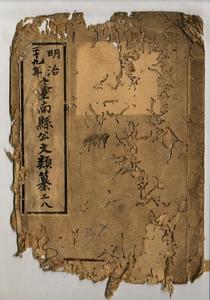 明治
二十九年
臺南縣公文類纂三八